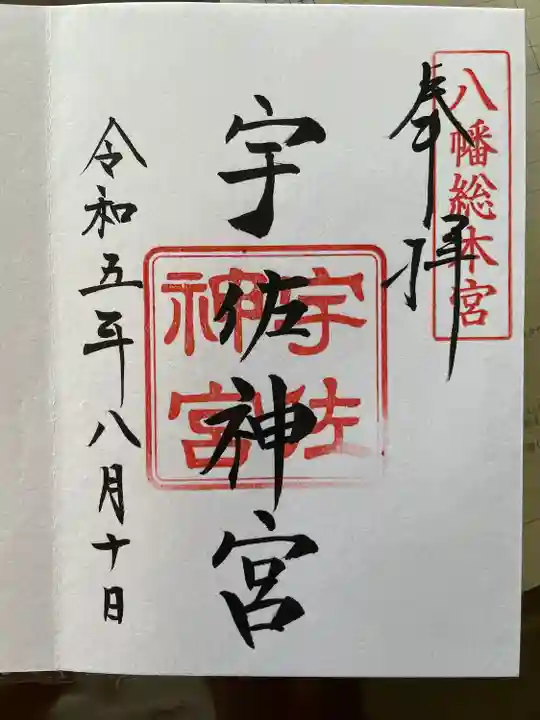 八幡総本宮
奉拝
宇佐神宮
宇佐
神宮
令和五年八月十日